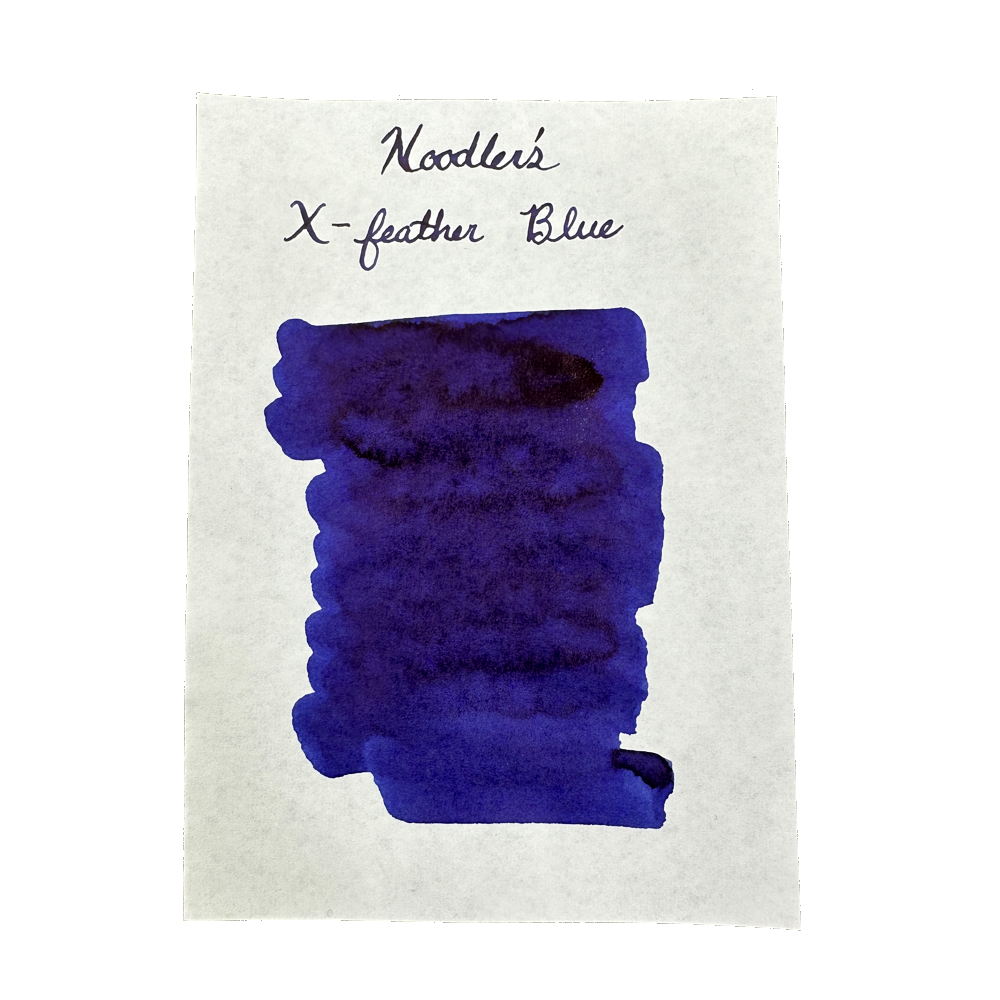 Noodler's
X-feather Blue